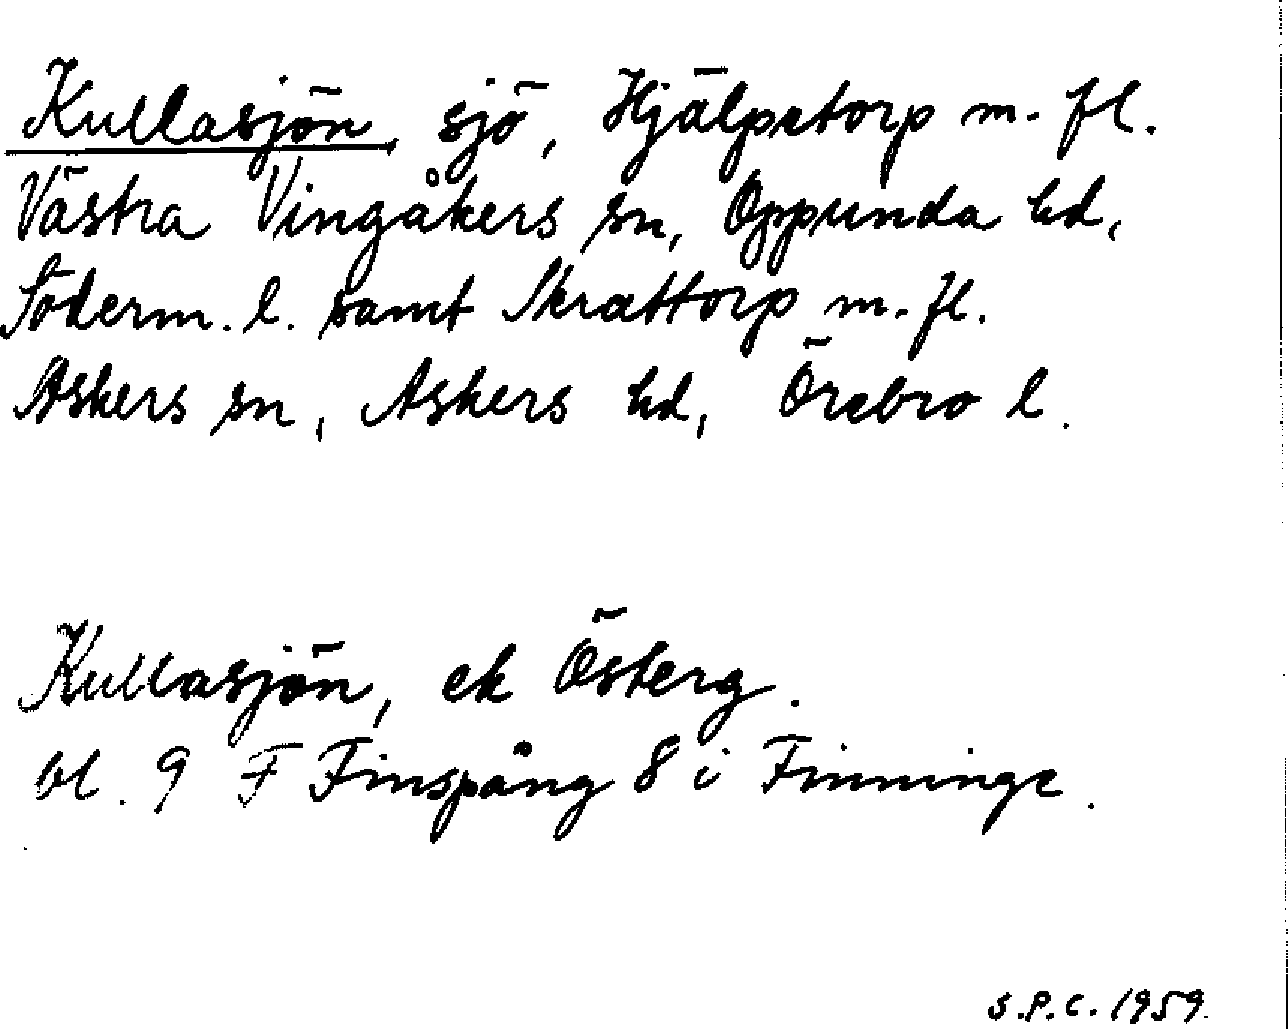 Kullasjön, sjö, Hjälpetorp m. fl.
Västra Vingåkers sn, Oppunda hd,
Söderm. l. samt Skrattorp m. fl.
Askers sn, Askers hd, Örebro l.
Kullasjön, ek Österg.
bl. 9 F Finspång 8 i Finninge.
S.P.C. 1959.